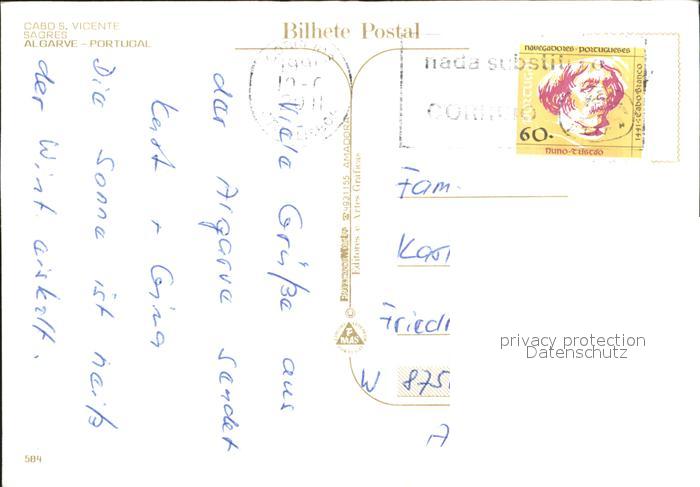 CABO S. VICENTE
SAGRES
ALGARVE - PORTUGAL
Bilhete Postal
nada substitui o
CORREIO
NAVEGADORES · PORTUGUESES
PORTUGAL
1441 · Cabo Branco
60.
NUNO · TRISTÃO
Viele Grüße aus
der Algarve sendet
Kast + Gina
Die Sonne ist heiß
der Wind eiskalt.
AMADORA
Editores e Artes Gráficas
MAS
Fam.
Kas
Friedr
W 875
A
privacy protection
Datenschutz
584